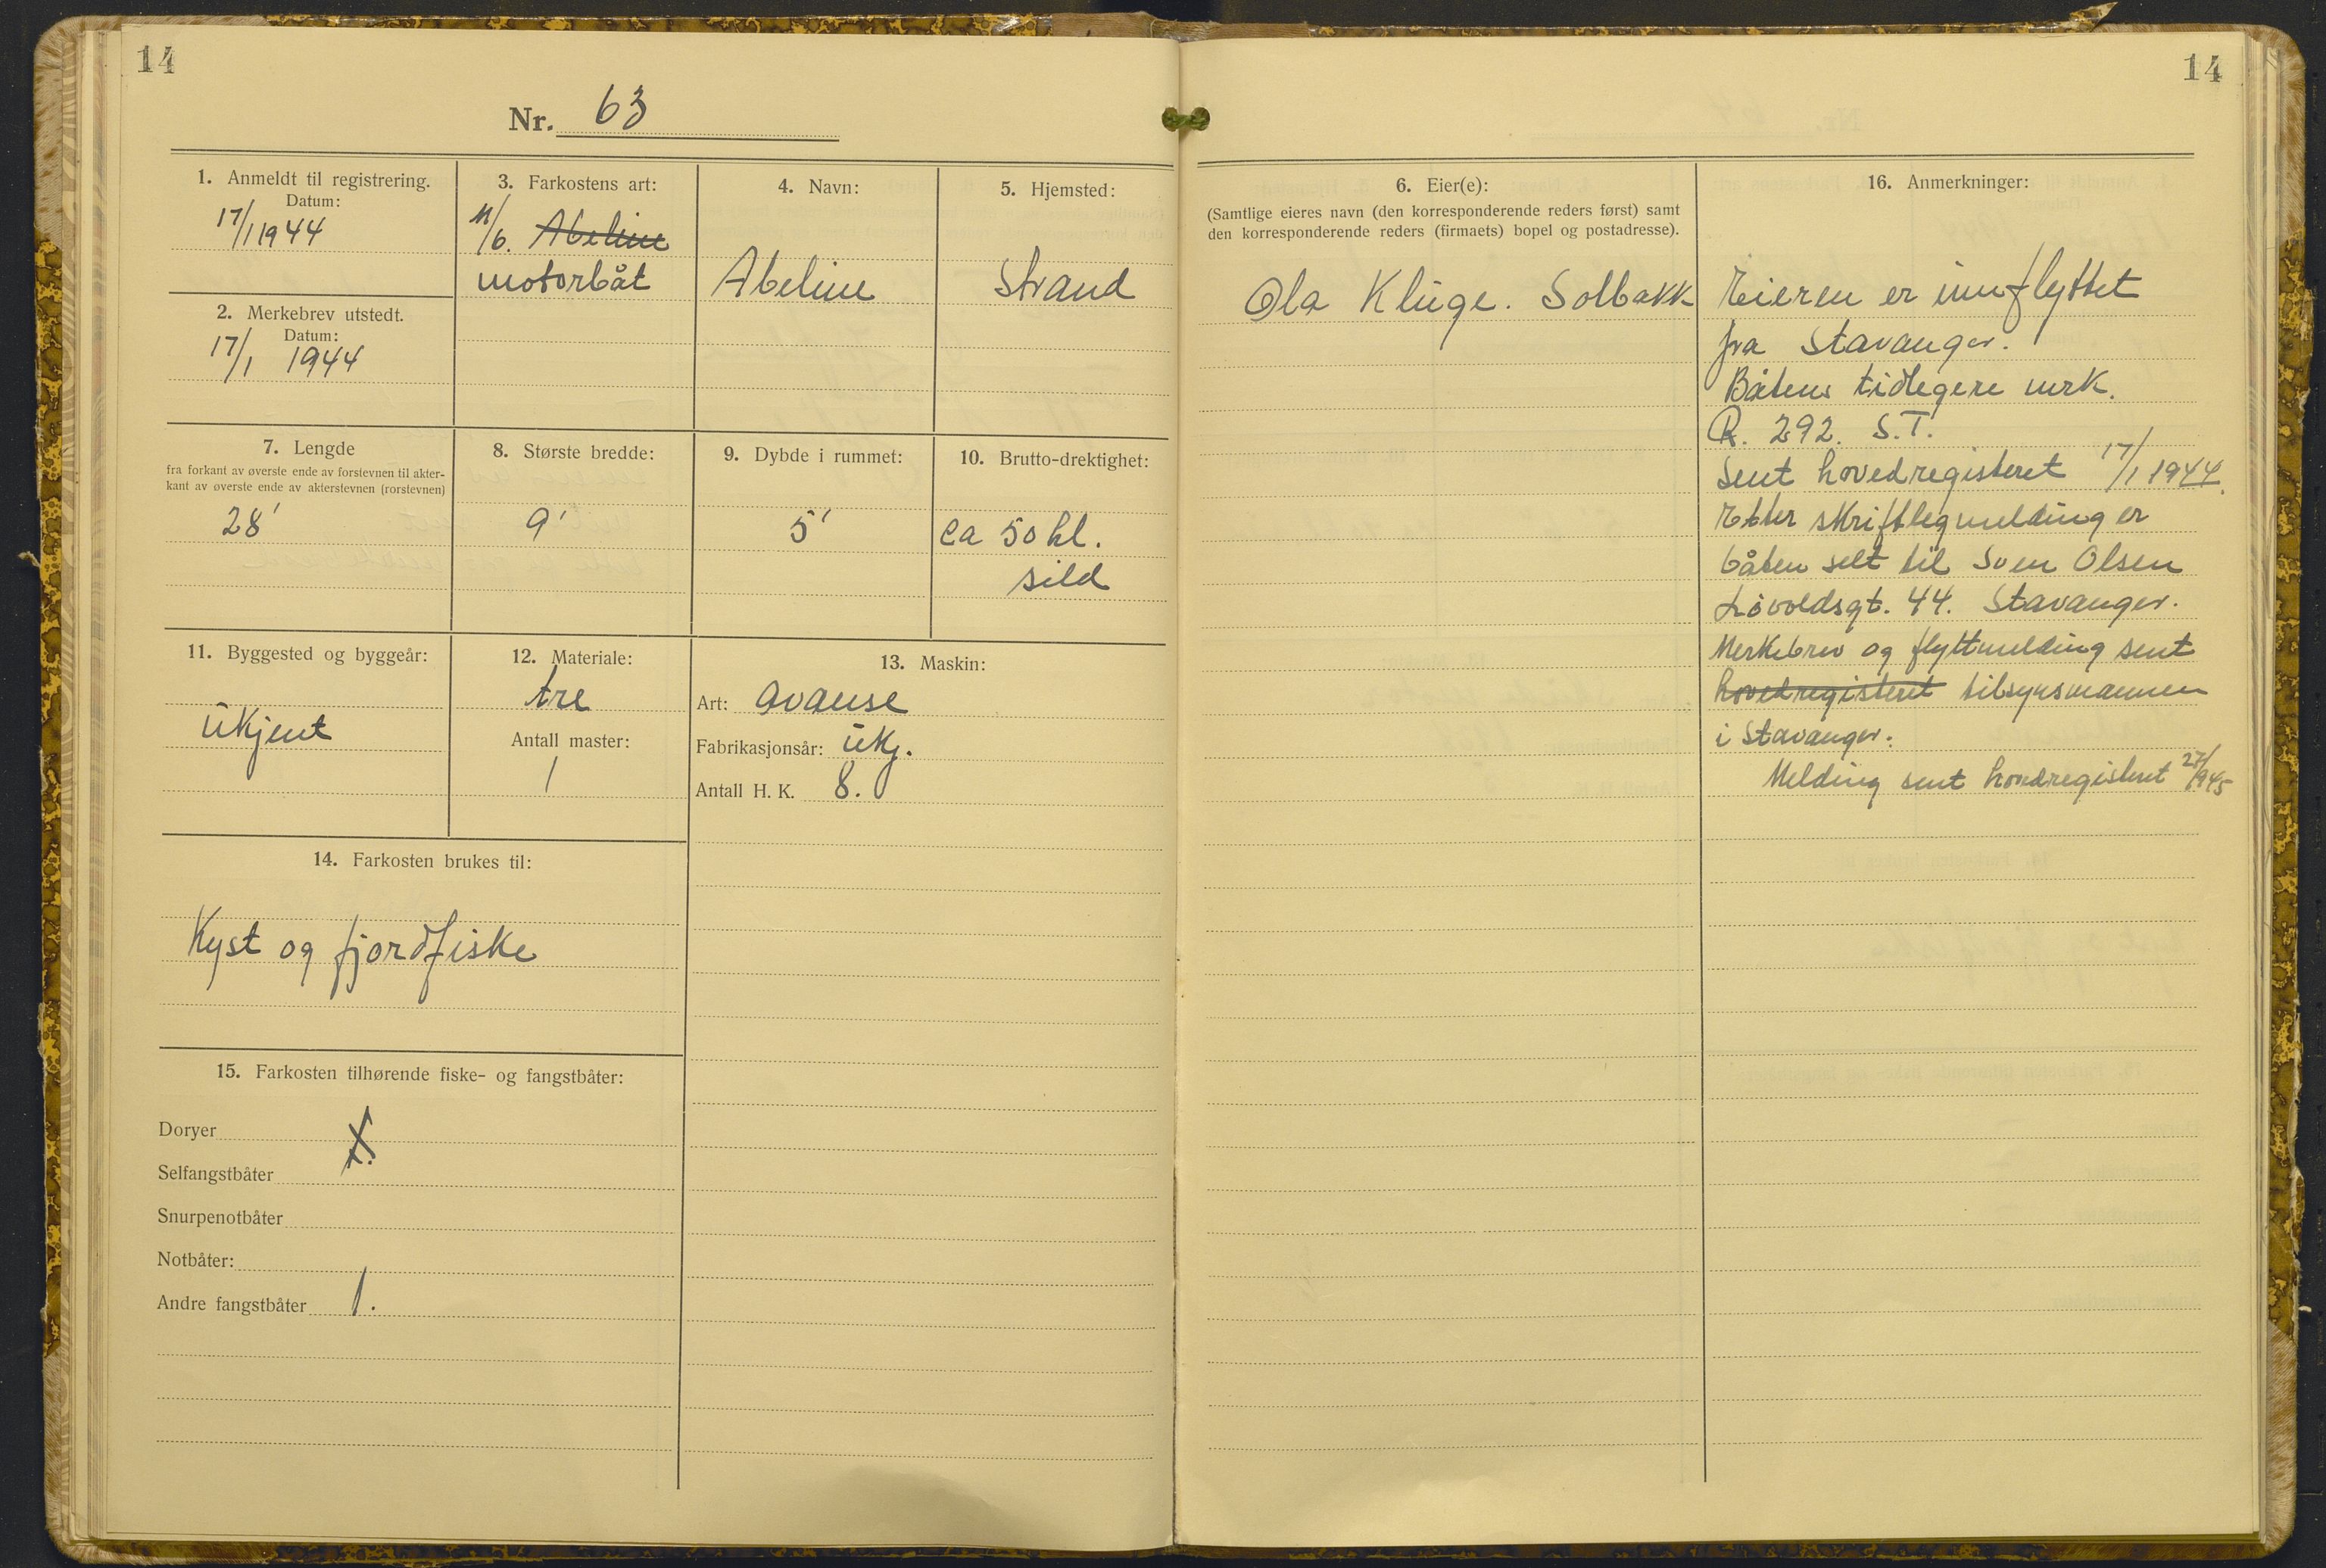 14
Nr. 63
1. Anmeldt til registrering.
Datum:
17/1 1944
2. Merkebrev utstedt.
Datum:
17/1 1944
3. Farkostens art:
M/b. Abeline
motorbåt
4. Navn:
Abeline
5. Hjemsted:
Strand
7. Lengde
fra forkant av øverste ende av forstevnen til akter-
kant av øverste ende av akterstevnen (rorstevnen)
28'
8. Største bredde:
9'
9. Dybde i rummet:
5'
10. Brutto-drektighet:
ca 50 hl.
sild
11. Byggested og byggeår:
Ukjent
12. Materiale:
tre
Antall master:
1
13. Maskin:
Art: Avanse
Fabrikasjonsår: ukj.
Antall H. K. 8.
14. Farkosten brukes til:
Kyst og fjordfiske
15. Farkosten tilhørende fiske- og fangstbåter:
Doryer
Selfangstbåter
Snurpenotbåter
Notbåter:
Andre fangstbåter 1.
14
6. Eier(e):
(Samtlige eieres navn (den korresponderende reders først) samt
den korresponderende reders (firmaets) bopel og postadresse).
Ola Kluge. Solbakk
16. Anmerkninger:
Eieren er innflyttet
fra Stavanger.
Båtens tidlegere merk.
R. 292. S.T.
Sent hovedregisteret 17/1 1944.
Etter skriftleg melding er
båten selt til Sven Olsen
Løvoldsgt. 44. Stavanger.
Merkebrev og flyttmelding sent
hovedregisteret tilsynsmannen
i Stavanger.
Melding sent hovedregisteret